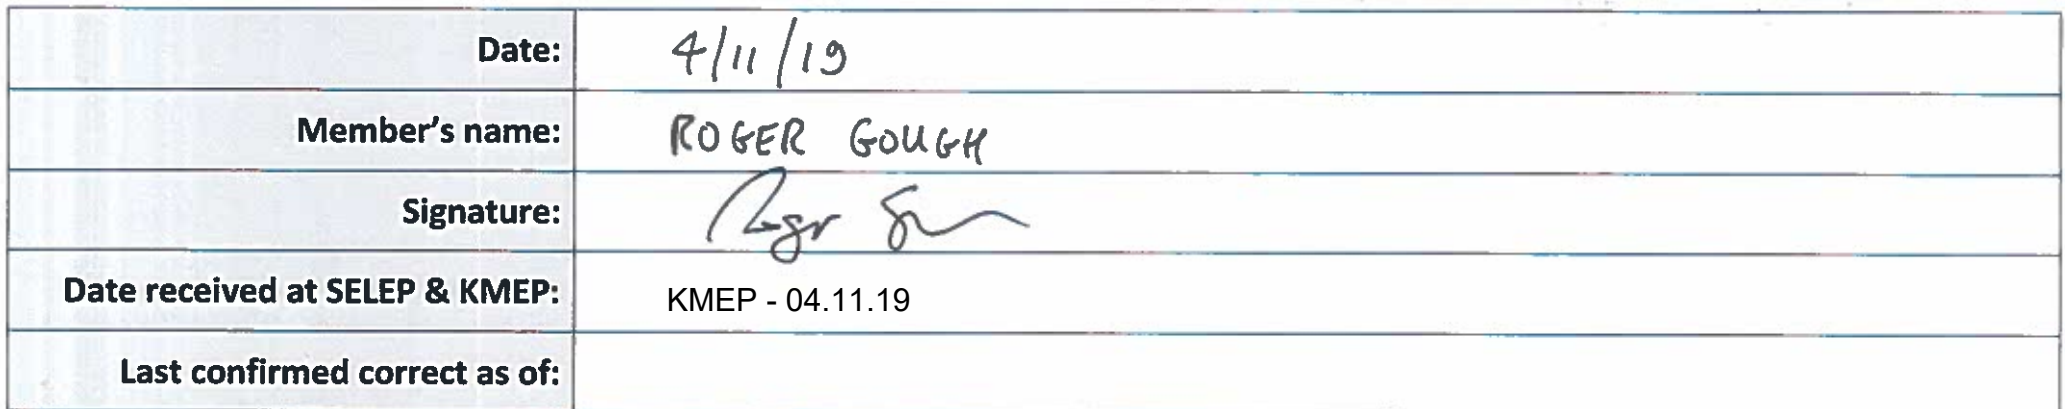 Date: 4/11/19
Member's name: ROGER GOUGH
Signature: Roger Gough
Date received at SELEP & KMEP: KMEP - 04.11.19
Last confirmed correct as of: